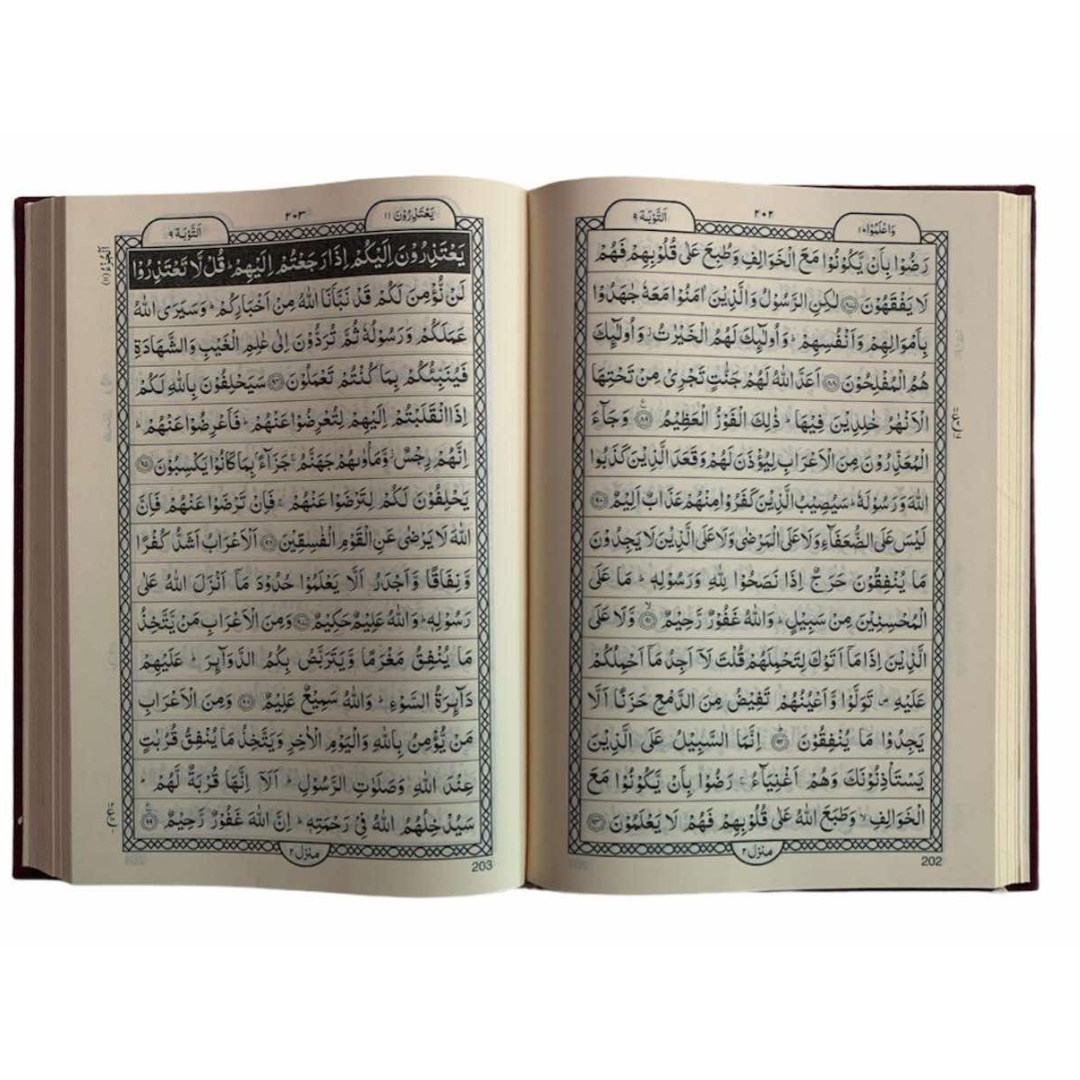 وَاعْلَمُوْۤا ١٠
٢٠٢
اَلتَّوْبَة ٩
رَضُوْا بِاَنْ يَّكُوْنُوْا مَعَ الْخَوَالِفِ وَطُبِعَ عَلٰى قُلُوْبِهِمْ فَهُمْ
لَا يَفْقَهُوْنَ ﴿٨٧﴾ لٰكِنِ الرَّسُوْلُ وَالَّذِيْنَ اٰمَنُوْا مَعَهٗ جٰهَدُوْا
بِاَمْوَالِهِمْ وَاَنْفُسِهِمْ ؕ وَاُولٰٓئِكَ لَهُمُ الْخَيْرٰتُ ؗ وَاُولٰٓئِكَ
هُمُ الْمُفْلِحُوْنَ ﴿٨٨﴾ اَعَدَّ اللّٰهُ لَهُمْ جَنّٰتٍ تَجْرِيْ مِنْ تَحْتِهَا
الْاَنْهٰرُ خٰلِدِيْنَ فِيْهَا ؕ ذٰلِكَ الْفَوْزُ الْعَظِيْمُ ﴿٨٩﴾ وَجَآءَ
الْمُعَذِّرُوْنَ مِنَ الْاَعْرَابِ لِيُؤْذَنَ لَهُمْ وَقَعَدَ الَّذِيْنَ كَذَبُوا
اللّٰهَ وَرَسُوْلَهٗ ؕ سَيُصِيْبُ الَّذِيْنَ كَفَرُوْا مِنْهُمْ عَذَابٌ اَلِيْمٌ ﴿٩٠﴾
لَيْسَ عَلَى الضُّعَفَآءِ وَلَا عَلَى الْمَرْضٰى وَلَا عَلَى الَّذِيْنَ لَا يَجِدُوْنَ
مَا يُنْفِقُوْنَ حَرَجٌ اِذَا نَصَحُوْا لِلّٰهِ وَرَسُوْلِهٖ ؕ مَا عَلَى
الْمُحْسِنِيْنَ مِنْ سَبِيْلٍ ؕ وَاللّٰهُ غَفُوْرٌ رَّحِيْمٌ ﴿٩١﴾ وَّلَا عَلَى
الَّذِيْنَ اِذَا مَاۤ اَتَوْكَ لِتَحْمِلَهُمْ قُلْتَ لَاۤ اَجِدُ مَاۤ اَحْمِلُكُمْ
عَلَيْهِ ۪ تَوَلَّوْا وَّاَعْيُنُهُمْ تَفِيْضُ مِنَ الدَّمْعِ حَزَنًا اَلَّا
يَجِدُوْا مَا يُنْفِقُوْنَ ﴿٩٢﴾ اِنَّمَا السَّبِيْلُ عَلَى الَّذِيْنَ
يَسْتَاْذِنُوْنَكَ وَهُمْ اَغْنِيَآءُ ۚ رَضُوْا بِاَنْ يَّكُوْنُوْا مَعَ
الْخَوَالِفِ ۙ وَطَبَعَ اللّٰهُ عَلٰى قُلُوْبِهِمْ فَهُمْ لَا يَعْلَمُوْنَ ﴿٩٣﴾
منزل ٢
202
يَعْتَذِرُوْنَ ١١
٢٠٣
اَلتَّوْبَة ٩
اَلْجُزْءُ (١١)
يَعْتَذِرُوْنَ اِلَيْكُمْ اِذَا رَجَعْتُمْ اِلَيْهِمْ ؕ قُلْ لَّا تَعْتَذِرُوْا
لَنْ نُّؤْمِنَ لَكُمْ قَدْ نَبَّاَنَا اللّٰهُ مِنْ اَخْبَارِكُمْ ؕ وَسَيَرَى اللّٰهُ
عَمَلَكُمْ وَرَسُوْلُهٗ ثُمَّ تُرَدُّوْنَ اِلٰى عٰلِمِ الْغَيْبِ وَالشَّهَادَةِ
فَيُنَبِّئُكُمْ بِمَا كُنْتُمْ تَعْمَلُوْنَ ﴿٩٤﴾ سَيَحْلِفُوْنَ بِاللّٰهِ لَكُمْ
اِذَا انْقَلَبْتُمْ اِلَيْهِمْ لِتُعْرِضُوْا عَنْهُمْ ؕ فَاَعْرِضُوْا عَنْهُمْ ؕ
اِنَّهُمْ رِجْسٌ ؗ وَّمَاْوٰىهُمْ جَهَنَّمُ ۚ جَزَآءًۢ بِمَا كَانُوْا يَكْسِبُوْنَ ﴿٩٥﴾
يَحْلِفُوْنَ لَكُمْ لِتَرْضَوْا عَنْهُمْ ۚ فَاِنْ تَرْضَوْا عَنْهُمْ فَاِنَّ
اللّٰهَ لَا يَرْضٰى عَنِ الْقَوْمِ الْفٰسِقِيْنَ ﴿٩٦﴾ اَلْاَعْرَابُ اَشَدُّ كُفْرًا
وَّنِفَاقًا وَّاَجْدَرُ اَلَّا يَعْلَمُوْا حُدُوْدَ مَاۤ اَنْزَلَ اللّٰهُ عَلٰى
رَسُوْلِهٖ ؕ وَاللّٰهُ عَلِيْمٌ حَكِيْمٌ ﴿٩٧﴾ وَمِنَ الْاَعْرَابِ مَنْ يَّتَّخِذُ
مَا يُنْفِقُ مَغْرَمًا وَّيَتَرَبَّصُ بِكُمُ الدَّوَآئِرَ ؕ عَلَيْهِمْ
دَآئِرَةُ السَّوْءِ ؕ وَاللّٰهُ سَمِيْعٌ عَلِيْمٌ ﴿٩٨﴾ وَمِنَ الْاَعْرَابِ
مَنْ يُّؤْمِنُ بِاللّٰهِ وَالْيَوْمِ الْاٰخِرِ وَيَتَّخِذُ مَا يُنْفِقُ قُرُبٰتٍ
عِنْدَ اللّٰهِ وَصَلَوٰتِ الرَّسُوْلِ ؕ اَلَاۤ اِنَّهَا قُرْبَةٌ لَّهُمْ ؕ
سَيُدْخِلُهُمُ اللّٰهُ فِيْ رَحْمَتِهٖ ؕ اِنَّ اللّٰهَ غَفُوْرٌ رَّحِيْمٌ ﴿٩٩﴾
منزل ٢
203